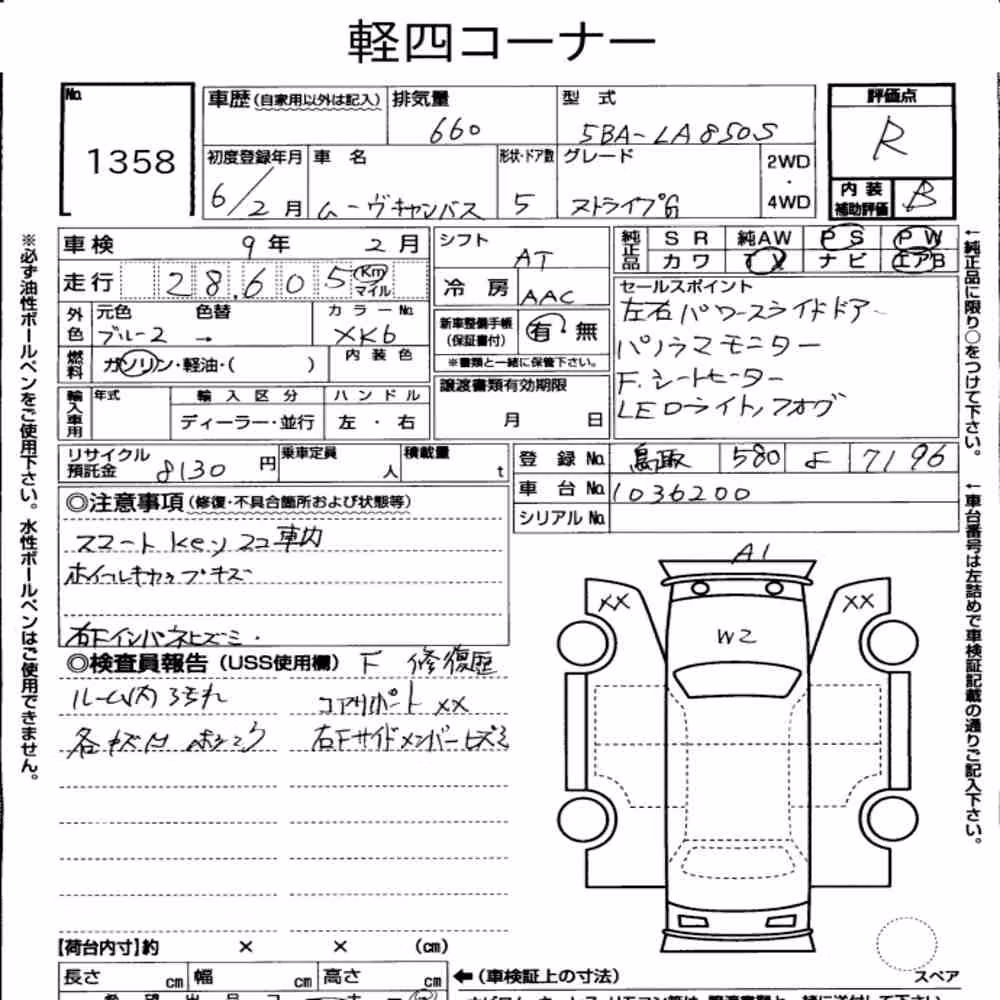 軽四コーナー
No. 1358
車歴(自家用以外は記入) 排気量 660 型式 5BA-LA850S
評価点 R
初度登録年月 6/2月 車名 ムーヴキャンバス 形状・ドア数 5 グレード ストライプG 2WD・4WD
内装補助評価 B
車検 9年 2月
走行 28,605 Km マイル
外色 元色 ブルー2 色替 → カラーNo. XK6
燃料 ガソリン・軽油・( ) 内装色
輸入車用 年式 輸入区分 ディーラー・並行 ハンドル 左・右
シフト AT
冷房 AAC
新車整備手帳(保証書付) 有 無
※書類と一緒に保管下さい。
譲渡書類有効期限 月 日
純正品 SR 純AW PS PW
カワ TV ナビ エアB
セールスポイント
左右パワースライドドアー
パノラマモニター
F.シートヒーター
LEDライト,フォグ
リサイクル預託金 8130円 乗車定員 人 積載量 t
登録No. 鳥取 580 よ 7196
車台No. 1036200
シリアルNo.
◎注意事項(修復・不具合箇所および状態等)
スマートKeyン2コ車内
ホイールキャップキズ
右Fインパネヒズミ.
◎検査員報告(USS使用欄)
F 修復歴
ルーム内ヨゴレ コアサポートXX
各キズ 右Fサイドメンバーヒズミ
A1
XX XX
W2
スペア
【荷台内寸】約 × × (cm)
長さ cm 幅 cm 高さ cm ←(車検証上の寸法)
※必ず油性ボールペンをご使用下さい。水性ボールペンはご使用できません。
←純正品に限り○をつけて下さい。
←車台番号は左詰めで車検証記載の通りご記入下さい。